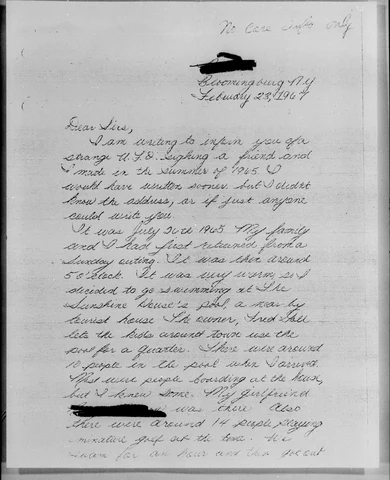 No Case Info Only
Bloomingburg N.Y
February 23, 1967
Dear Sirs,
I am writing to inform you of a
strange U.F.O. sighting a friend and
I made in the summer of 1965. I
would have written sooner, but I didn't
know the address, or if just anyone
could write you.
It was July 26th 1965. My family
and I had just returned from a
Sunday outing. It was then around
5 o'clock. It was very warm, so I
decided to go swimming at The
Sunshine House's pool a near by
tourist house. The owner, Fred
lets the kids around town use the
pool for a quarter. There were around
10 people in the pool when I arrived.
Most were people boarding at the house,
but I knew some. My girlfriend
was there. Also
there were around 14 people playing
minature golf at the time. We
swam for an hour and then got out